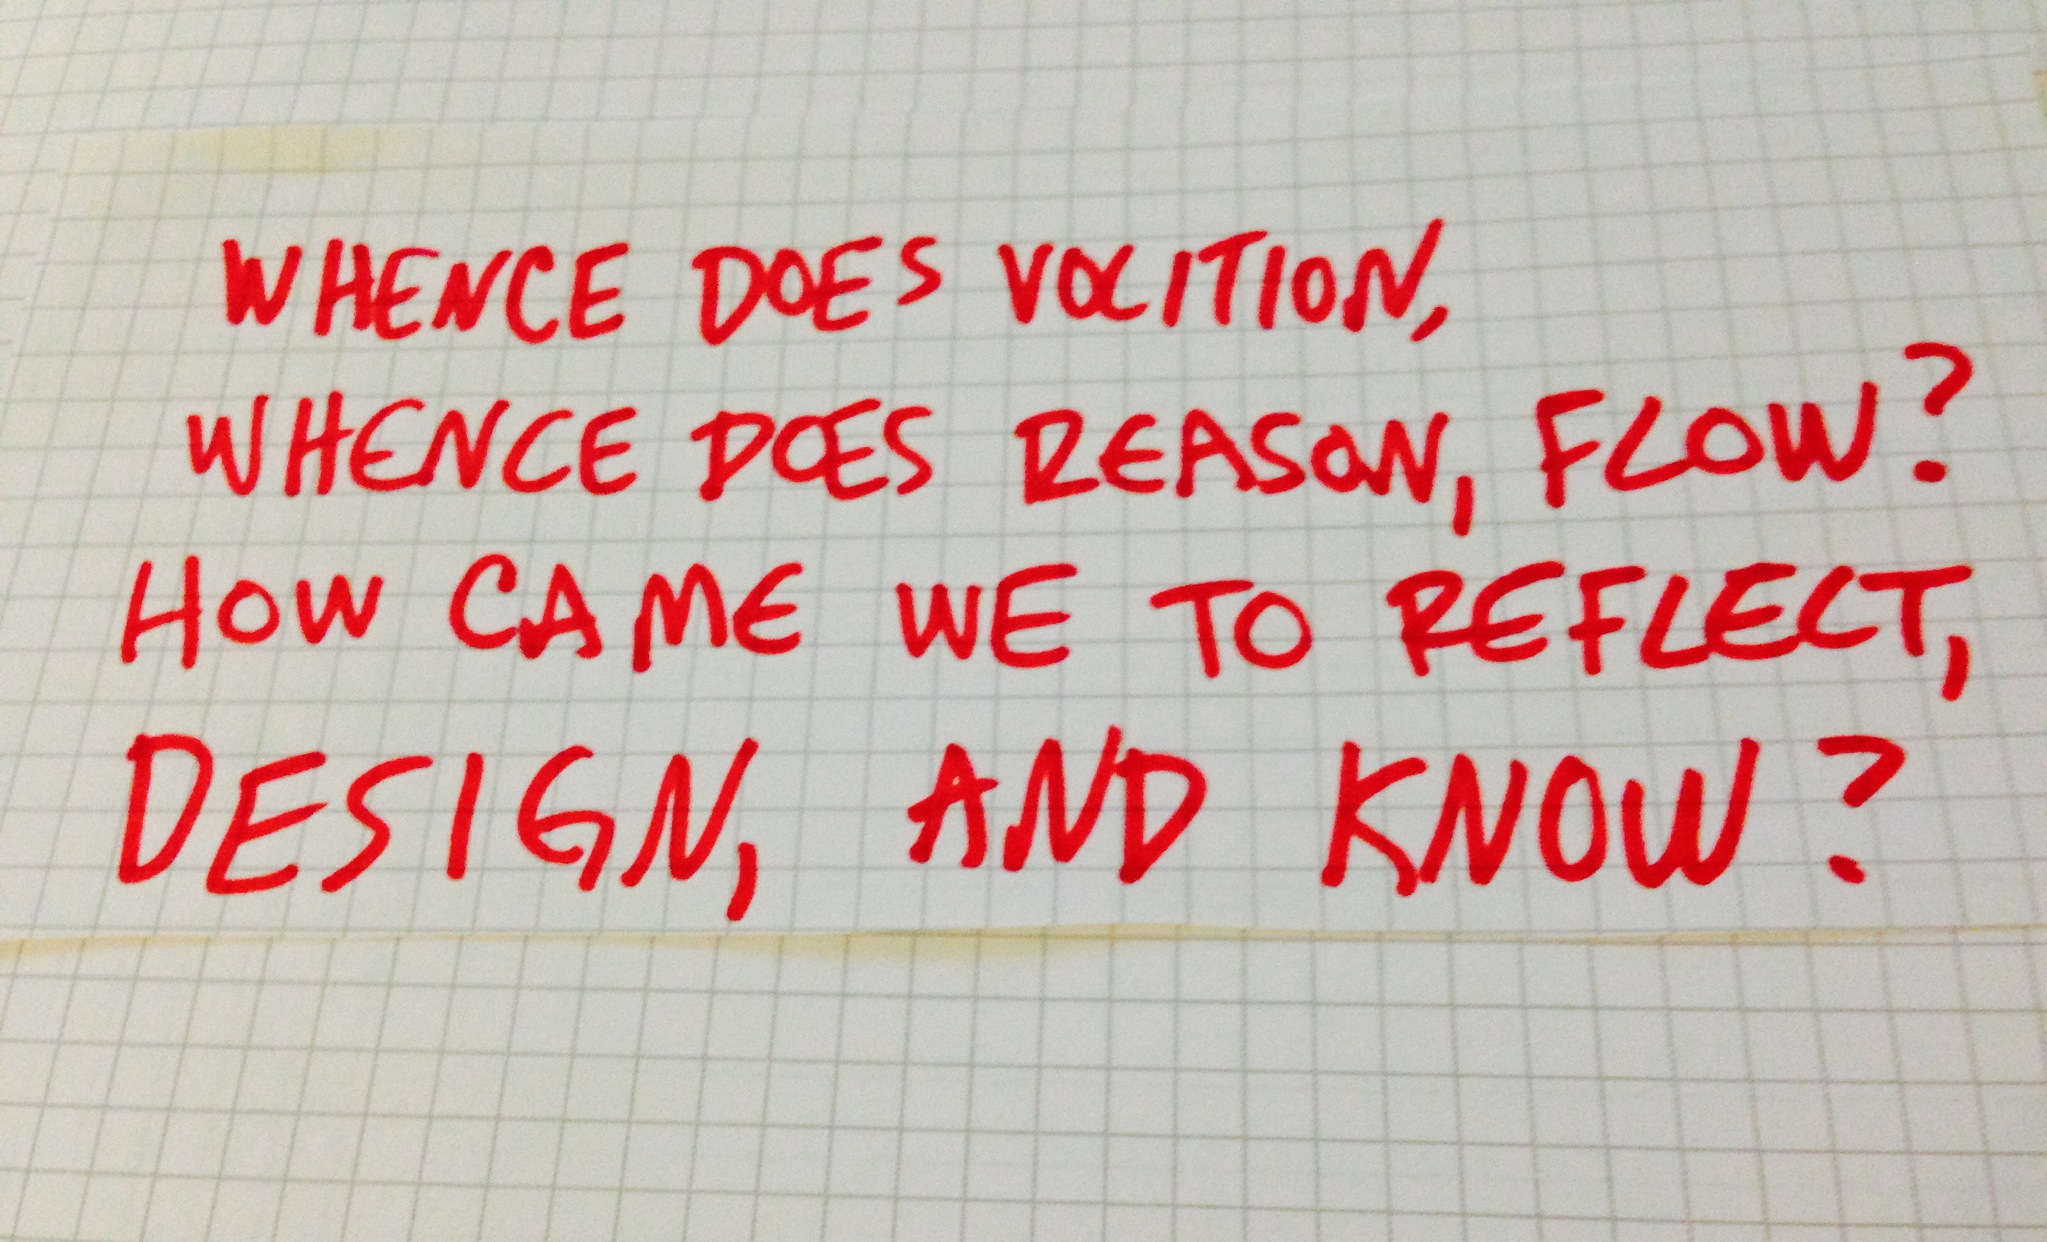 WHENCE DOES VOLITION,
WHENCE DOES REASON, FLOW?
HOW CAME WE TO REFLECT,
DESIGN, AND KNOW?